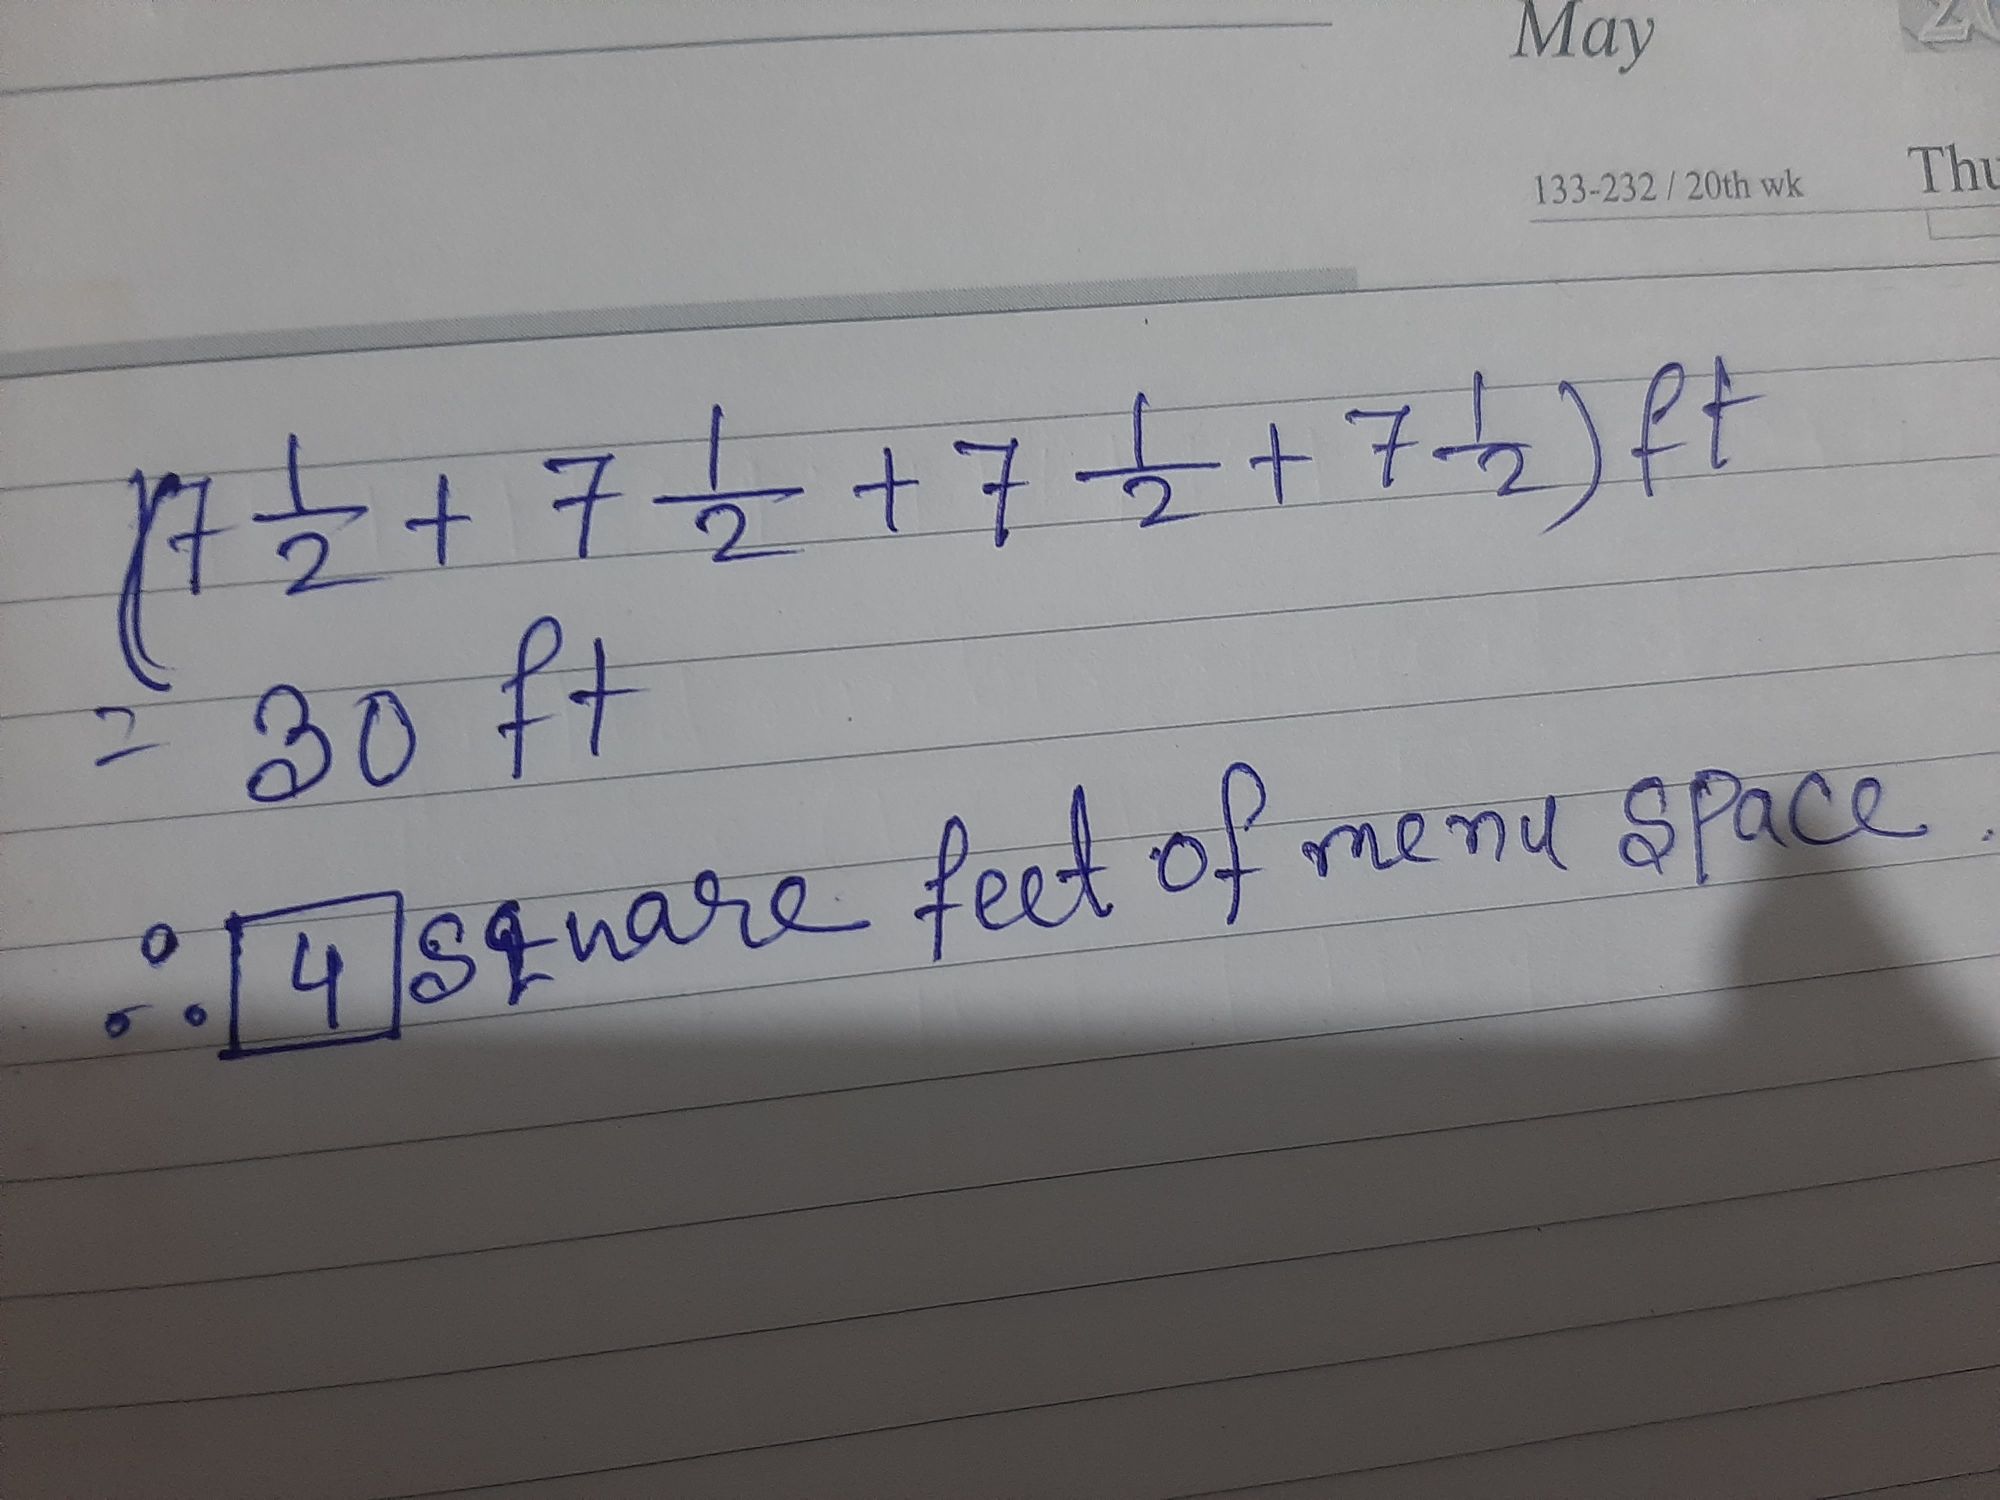 May
133-232 / 20th wk
(7 1/2 + 7 1/2 + 7 1/2 + 7 1/2) ft
= 30 ft
∴ 4 square feet of menu space.